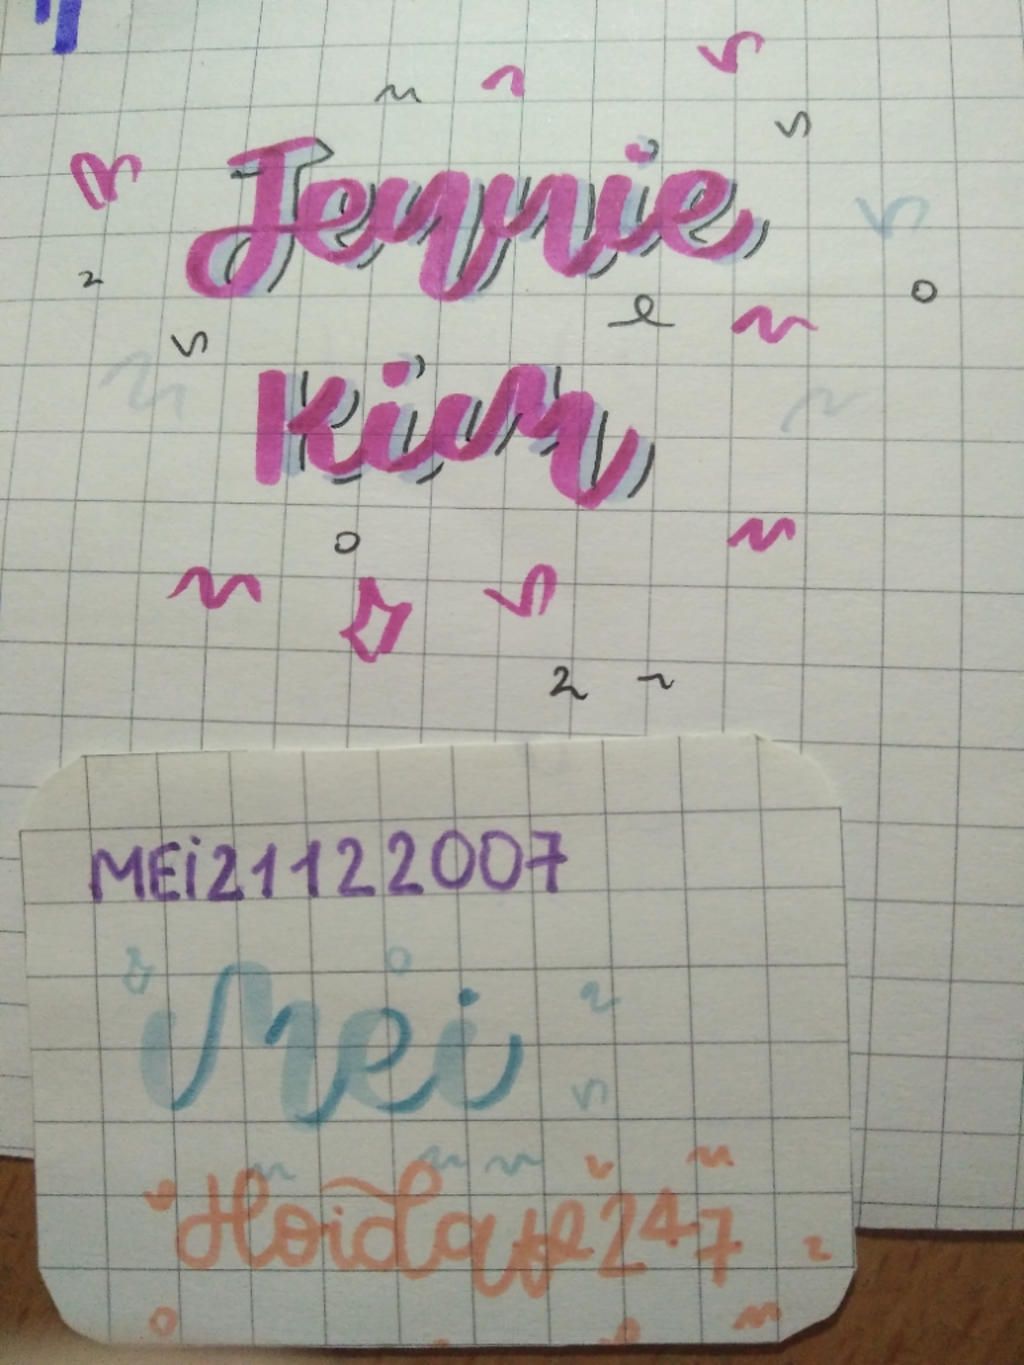 Jennie
Kim
MEi21122007
Mei
Hoidap247